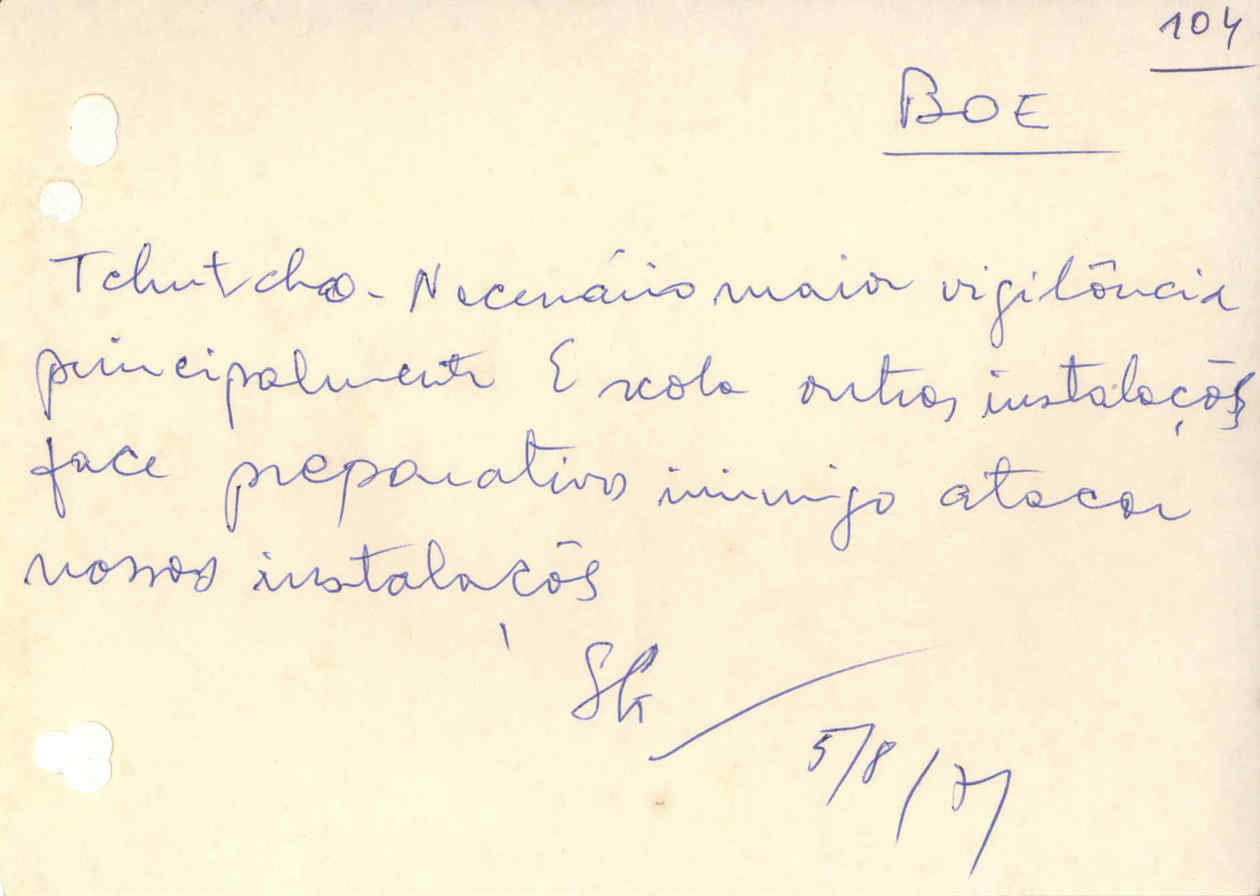 104
BOE
Tchutchao - Necessário maior vigilância
principalmente Escola outras instalações
face preparativos inimigo atacar
nossas instalações
SG
5/8/71